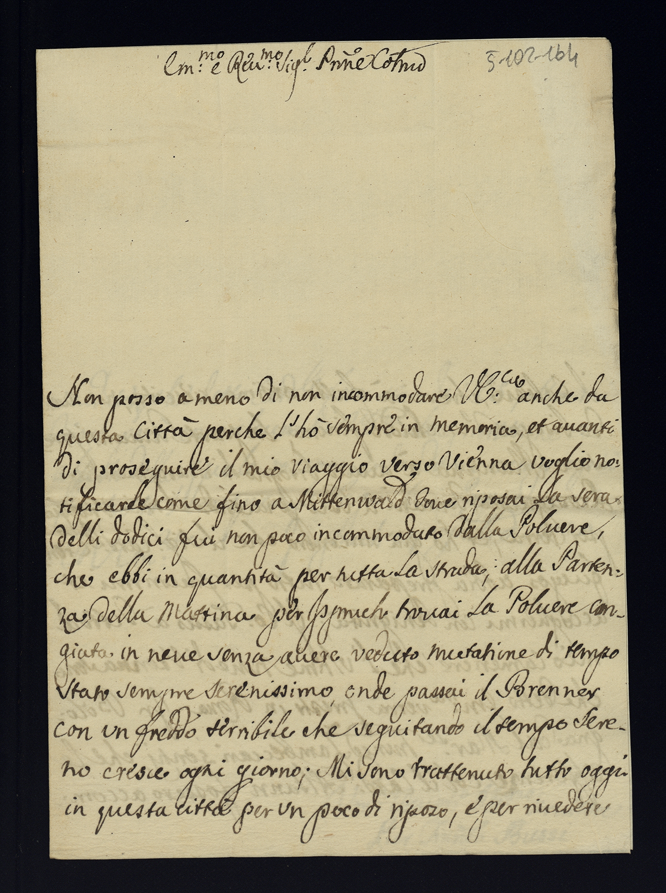 Em:mo e Reu:mo Sig:r Pñe Colmo
5-102-164
Non posso a meno di non incommodare V.E: anche da
questa Città perche L'hò sempre in memoria, et auanti
di proseguire il mio viaggio verso Vienna voglio no:
tificarle come fino a Mittenwald doue riposai La sera
delli dodici fui non poco incommodato dalla Poluere,
che ebbi in quantità per tutta La strada; alla Parten:
za della Mattina per Jspruch trouai La Poluere can-
giata in neue senza auere veduto mutatione di tempo
stato sempre serenissimo, onde passai il Brenner
con un freddo terribile che seguitando il tempo sere-
no cresce ogni giorno; Mi sono trattenuto tutto oggi
in questa città per un poco di riposo, e per riuedere